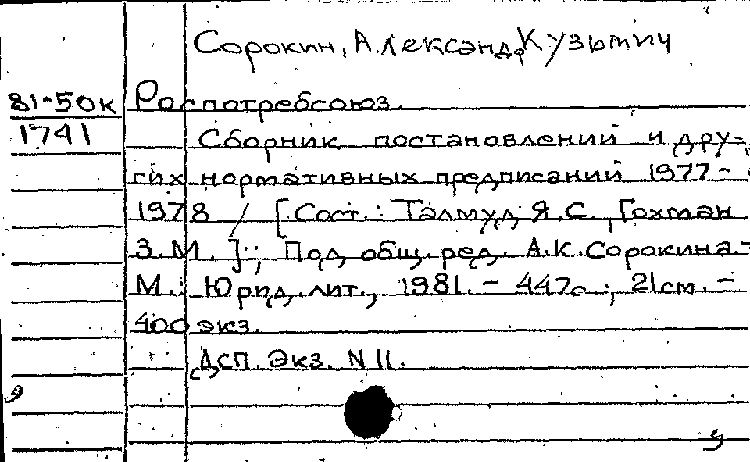 Сорокин, Александр Кузьмич
81-50к Роспотребсоюз.
1741 Сборник постановлений и дру-
гих нормативных предписаний 1977-
1978 / [Сост.: Талмуд Я.С., Гохман
З.М.]; Под общ. ред. А.К.Сорокина.-
М.: Юрид. лит., 1981. - 447с.; 21см. -
400 экз.
ДСП. Экз. N 11.